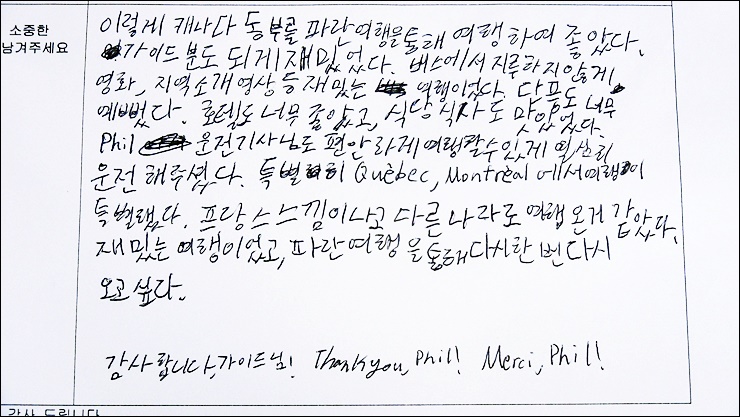 소중한
남겨주세요
이렇게 캐나다 동부를 파란여행을통해 여행하여 좋았다.
가이드분도 되게 재밌었다. 버스에서 지루하지않게
영화, 지역소개영상 등 재밌는 여행이었다. 단풍도
예뻤다. 호텔도 너무 좋았고, 식당 식사도 너무 맛있었다.
Phil 운전기사님도 편안하게 여행할수있게 열심히
운전해주셨다. 특별히 Québec, Montréal 에서여행이
특별했다. 프랑스느낌이나고 다른나라로 여행온거 같았다.
재밌는 여행이었고, 파란여행을 통해다시한번다시
오고싶다.
감사합니다, 가이드님! Thank you, Phil! Merci, Phil!
감사 드립니다